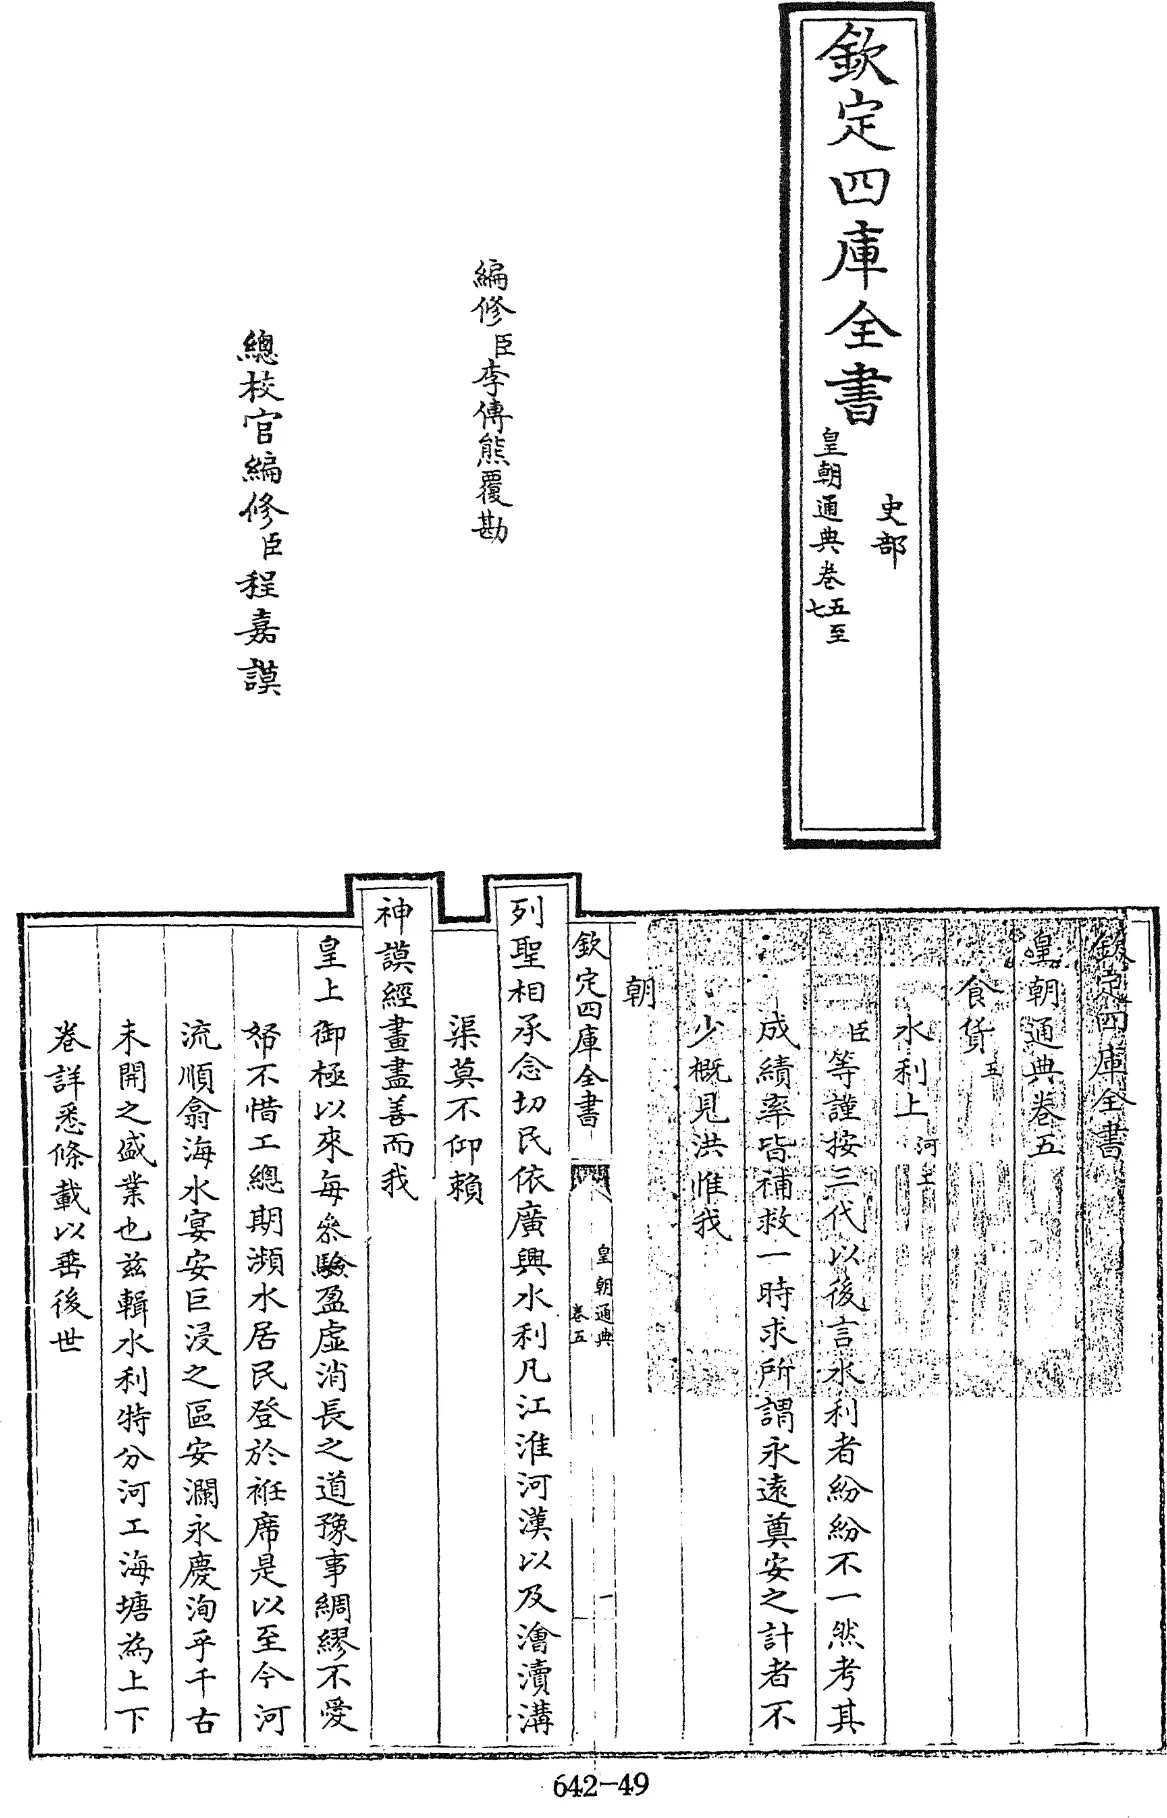 欽定四庫全書
史部
皇朝通典卷五至
七
編修臣李傳熊覆勘
總校官編修臣程嘉謨
欽定四庫全書
皇朝通典卷五
食貨五
水利上河工
臣等謹按三代以後言水利者紛紛不一然考其
成績率皆補救一時求所謂永遠奠安之計者不
少概見洪惟我
朝
欽定四庫全書
皇朝通典
卷五
一
列聖相承念切民依廣興水利凡江淮河漢以及澮瀆溝
渠莫不仰賴
神謨經畫盡善而我
皇上御極以來每叅驗盈虛消長之道豫事綢繆不愛
帑不惜工總期瀕水居民登於袵席是以至今河
流順翕海水宴安巨浸之區安瀾永慶洵乎千古
未開之盛業也兹輯水利特分河工海塘為上下
卷詳悉條載以垂後世
642-49